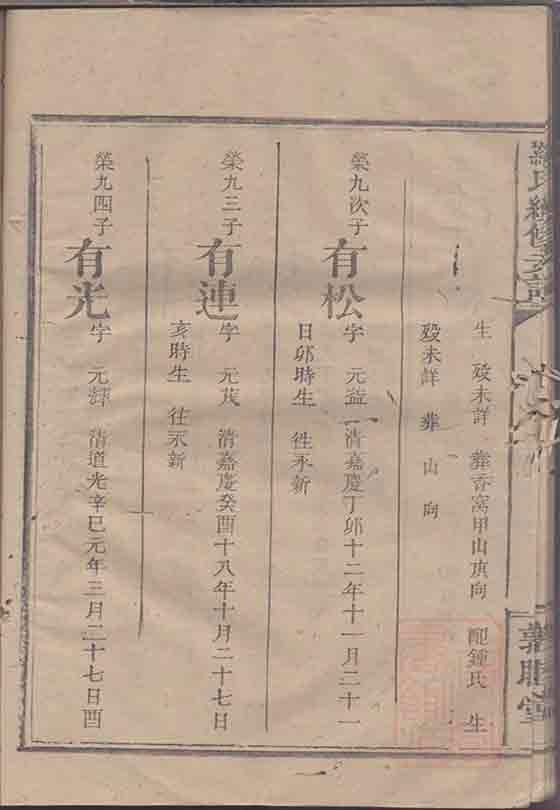 羅氏續修支譜
堂
生 歿未詳 葬香窩甲山庚向 配鍾氏 生
歿未詳 葬 山 向
榮九次子
有松
字 元益 清嘉慶丁卯十二年十一月二十一
日卯時生 徃永新
榮九三子
有連
字 元茂 清嘉慶癸酉十八年十月二十七日
亥時生 往永新
榮九四子
有光
字 元輝 清道光辛巳元年三月二十七日酉